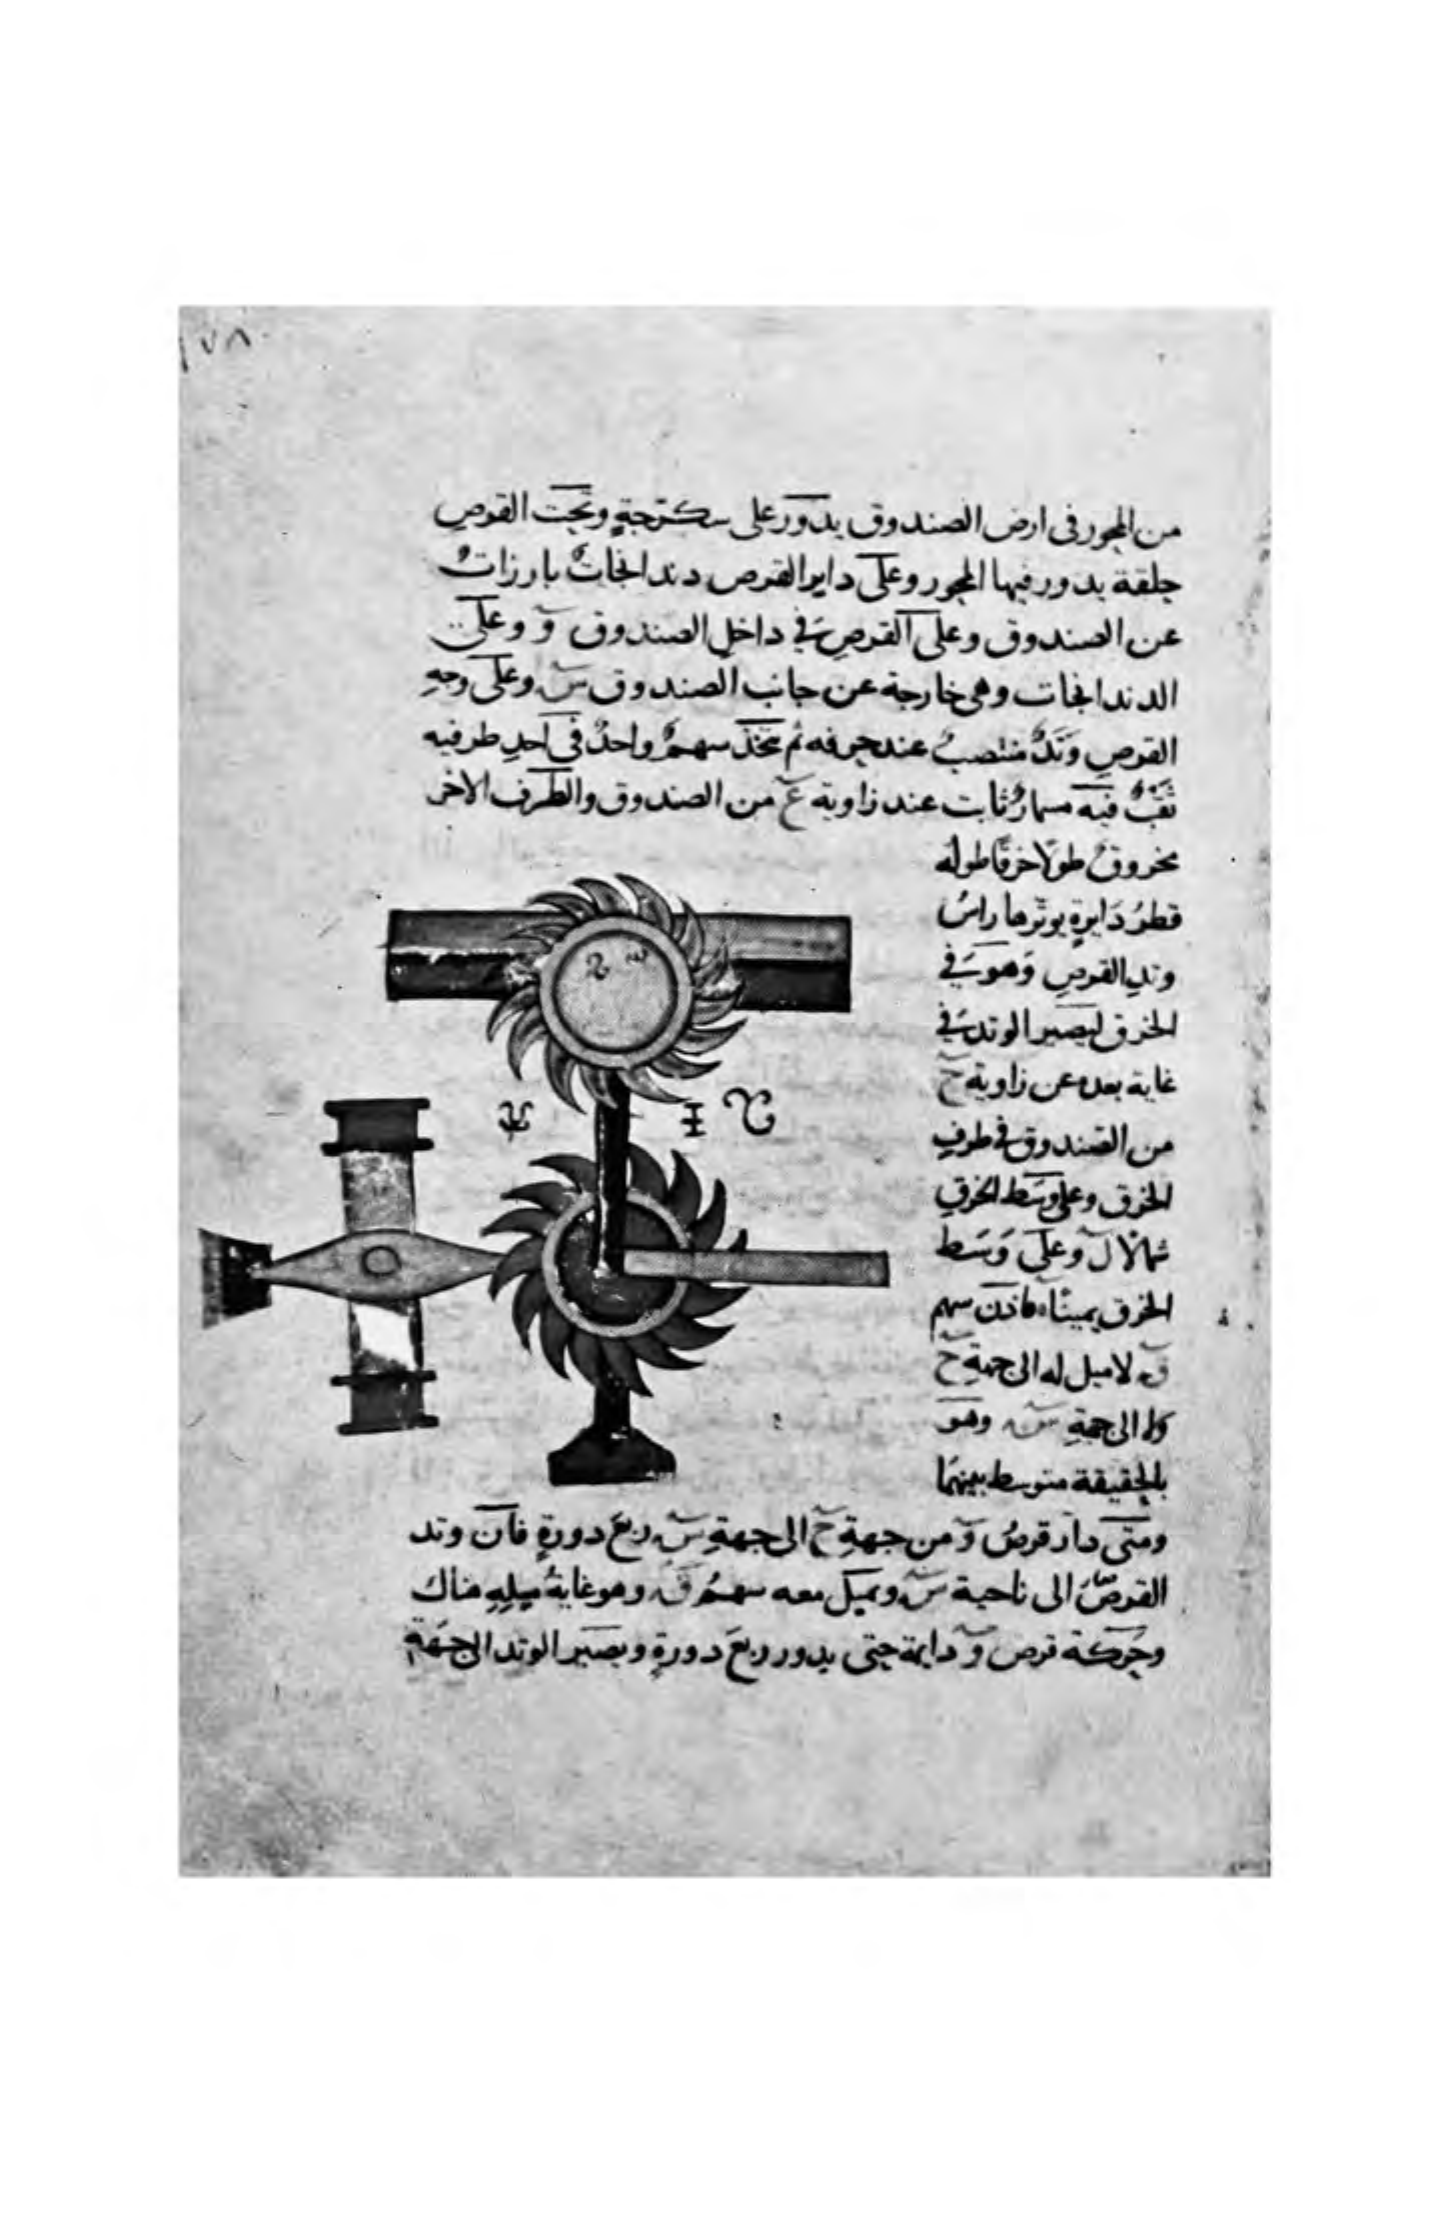 ١٧٨
من المحور فى ارض الصندوق يدور على سكرّجةٍ وتحت القرص
حلقة يدور فيها المحور وعلى داير القرص دندانجاتٌ بارزاتٌ
عن الصندوق وعلى القرص فى داخل الصندوق وَ وعلى
الدندانجات وهى خارجة عن جانب الصندوق س وعلى وجهِ
القرصِ وَتَدٌ منتصبٌ عند حرفه ثم يتخذ سهمٌ واحدٌ فى احدِ طرفيه
ثقبٌ فيه مسمارٌ ثابت عند زاوية ع من الصندوق والطرف الاخر
مخروقٌ طولًا خرقًا طوله
قطرُ دَايرةٍ يوترها راسُ
وتدِ القرصِ وَهوَ فى
الخرق ليصير الوتد فى
غاية بعده عن زاوية ح
من الصندوق فى طرفِ
الخرق وعلى وسَط الخرقِ
شمالًا ل وعلى وَسَط
الخرق يمينًا ه فاذن سهم
ق لا ميل له الى جهةِ ح
ولا الى جهةِ س وهو
بالحقيقة متوسط بينهمَا
ومتى دار قرصُ وَ من جهةِ ح الى جهةِ س ربعَ دورةٍ فان وتد
القرصِ الى ناحية س ويميل معه سهمُ ق وهو غايةُ ميلِهِ هناك
وحركة قرص وَ دايمة حتى يدور ربعَ دورةٍ ويصَير الوتد الى جهَةِ